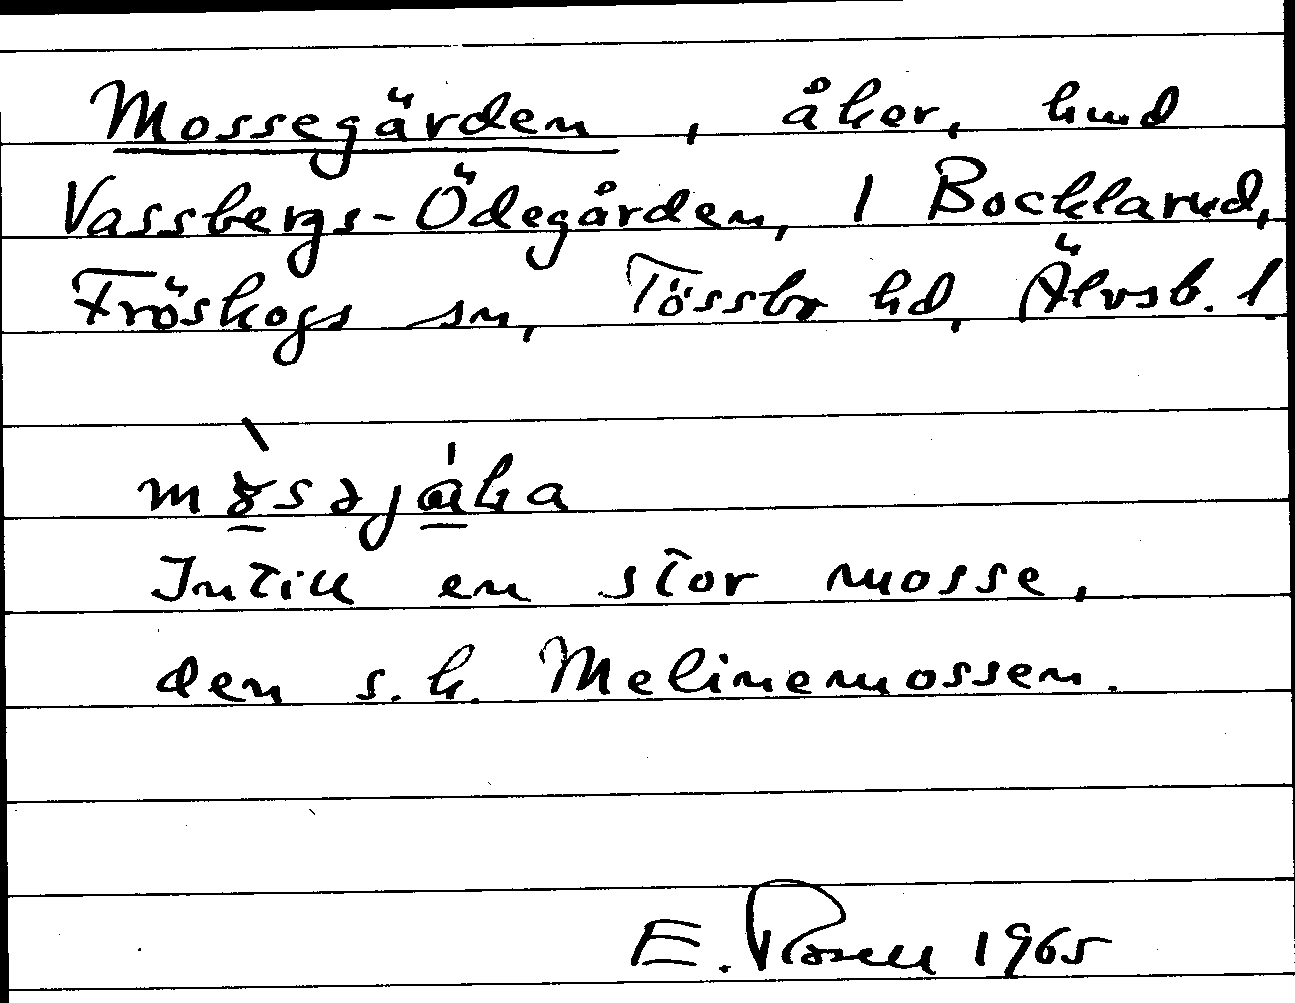 Mossegärden, åker, hmd
Vassbergs-Ödegården, 1 Bocklarud,
Fröskogs sn, Tössbo hd, Älvsb. l.
Intill en stor mosse,
den s.k. Melinemossen.
E. Rosell 1965